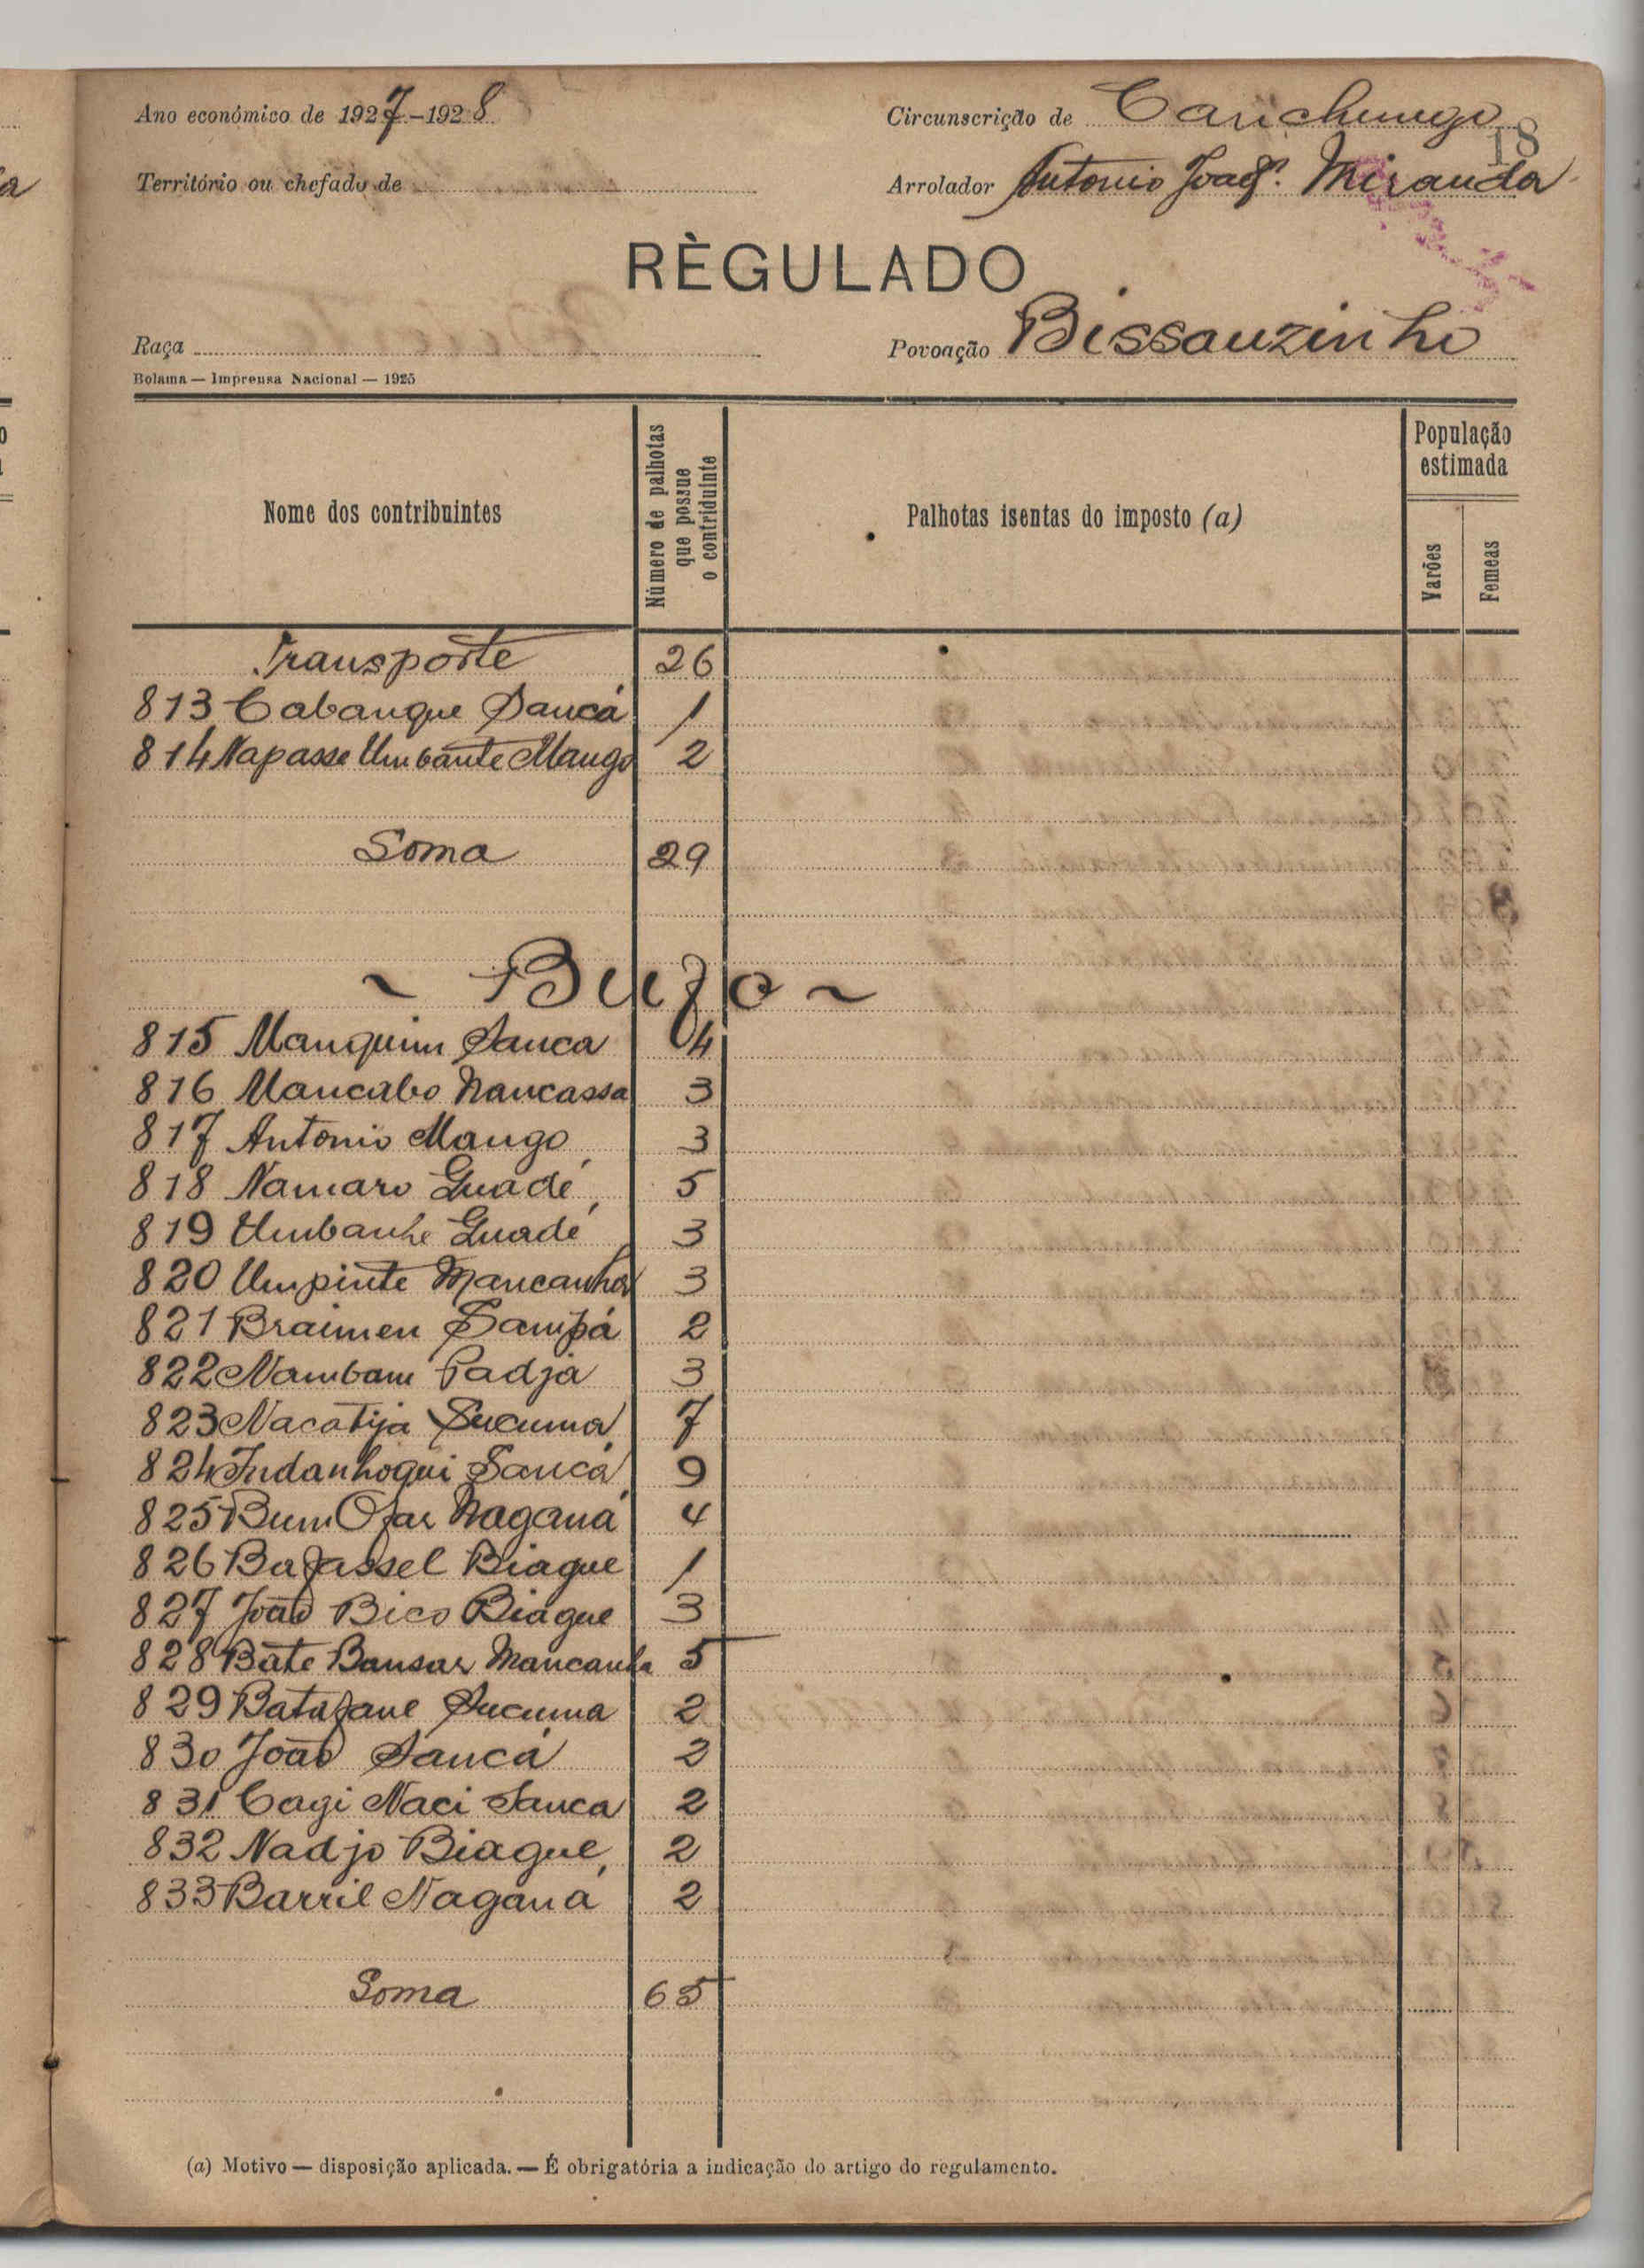 Ano económico de 1927-1928
Circunscrição de Canchungo
18
Território ou chefado de
Arrolador Antonio Joaqm. Miranda
RÈGULADO
Raça
Povoação Bissauzinho
Bolama — Imprensa Nacional — 1925
Nome dos contribuintes
Número de palhotas que possue o contriduinte
Palhotas isentas do imposto (a)
População estimada
Varões
Femeas
Transporte 26
813 Cabanque Sancá 1
814 Napasse Umbante Mango 2
Soma 29
~ Bufo ~
815 Manquim Sanca 4
816 Mancabo Nancassa 3
817 Antonio Mango 3
818 Namaro Guadé 5
819 Umbanhe Guadé 3
820 Umpinte Mancanha 3
821 Braimen Sampá 2
822 Nambam Padja 3
823 Nacatija Sucuma 7
824 Indanhogui Sancá 9
825 Bum Ofar Naganá 4
826 Bafassel Biague 1
827 João Bico Biague 3
828 Bate Bansar Mancanha 5
829 Batafane Sucuma 2
830 João Sancá 2
831 Cagi Naci Sanca 2
832 Nadjo Biague 2
833 Barril Naganá 2
Soma 65
(a) Motivo — disposição aplicada. — É obrigatória a indicação do artigo do regulamento.